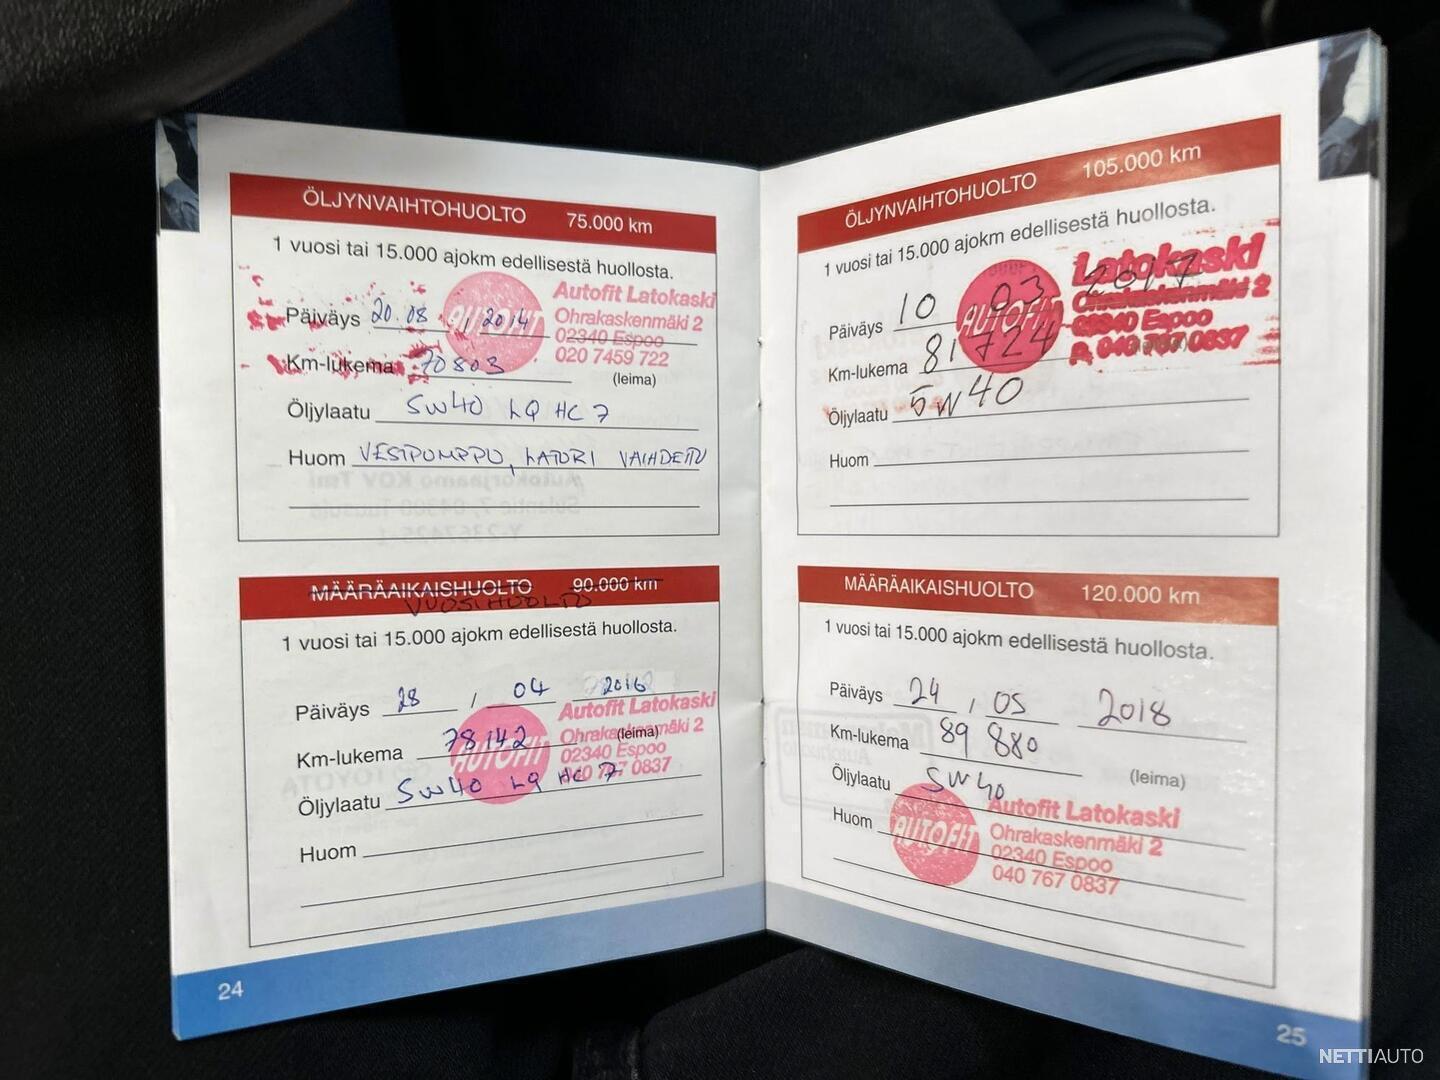 ÖLJYNVAIHTOHUOLTO 75.000 km
1 vuosi tai 15.000 ajokm edellisestä huollosta.
Päiväys 20.08 , 2014
Km-lukema 70803
(leima)
Öljylaatu 5W40 LQ HC 7
Huom VESIPUMPPU, LATURI VAIHDETTU
AUTOFIT
Autofit Latokaski
Ohrakaskenmäki 2
02340 Espoo
020 7459 722
MÄÄRÄAIKAISHUOLTO 90.000 km
VUOSIHUOLTO
1 vuosi tai 15.000 ajokm edellisestä huollosta.
Päiväys 28 , 04 2016
Km-lukema 78142
(leima)
Öljylaatu 5W40 LQ HC 7
Huom
AUTOFIT
Autofit Latokaski
Ohrakaskenmäki 2
02340 Espoo
040 767 0837
24
ÖLJYNVAIHTOHUOLTO 105.000 km
1 vuosi tai 15.000 ajokm edellisestä huollosta.
Päiväys 10 03 2017
Km-lukema 81724
Öljylaatu 5W40
Huom
AUTOFIT
Latokaski
Ohrakaskenmäki 2
02340 Espoo
040 767 0837
MÄÄRÄAIKAISHUOLTO 120.000 km
1 vuosi tai 15.000 ajokm edellisestä huollosta.
Päiväys 24 , 05 2018
Km-lukema 89 880
(leima)
Öljylaatu 5W40
Huom
AUTOFIT
Autofit Latokaski
Ohrakaskenmäki 2
02340 Espoo
040 767 0837
25
NETTIAUTO